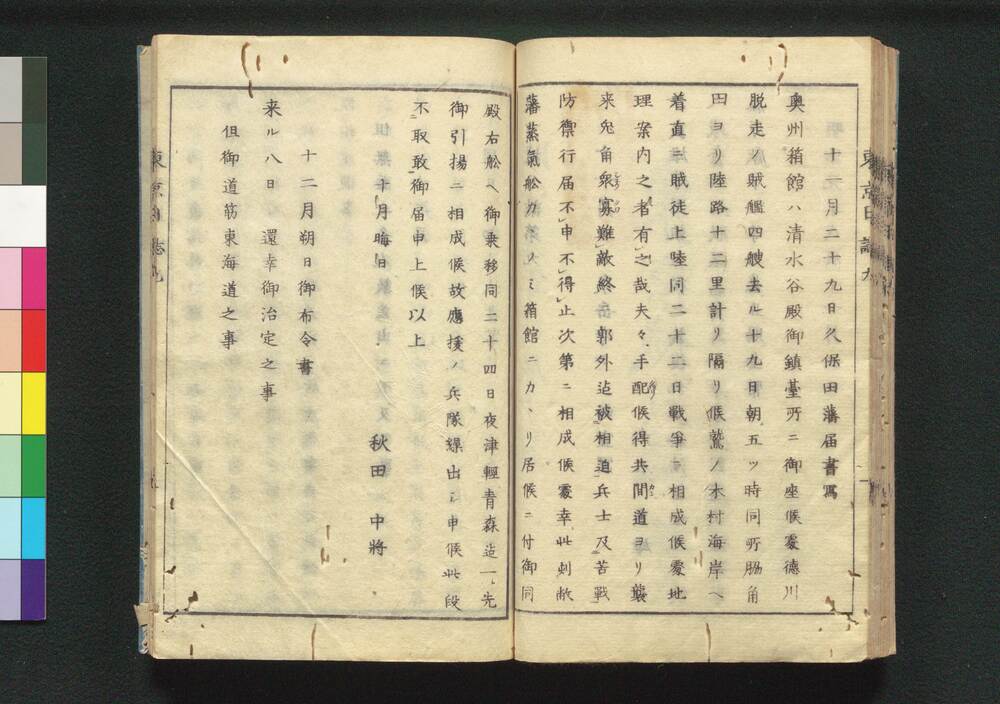 十一月二十九日久保田藩届書写
奥州箱館ハ清水谷殿御鎮臺所ニ御座候處徳川
脱走ノ賊艦四艘去ル十九日朝五ツ時同所脇角
田ヨリ陸路十二里計リ隔リ候鷲ノ木村海岸ヘ
着直ニ賊徒上陸同二十二日戦争ニ相成候處地
理案内之者有之哉夫々手配候得共間道ヨリ襲
来兎角衆寡難敵終岳郭外迠被相迫兵士及苦戦
防禦行届不申不得止次第ニ相成候處幸此刻敝
藩蒸氣舩カノ久ミ箱館ニカヽリ居候ニ付御同
殿右舩ヘ御乗移同二十四日夜津輕青森迠一ト先
御引揚ニ相成候故應援ノ兵隊繰出シ申候此段
不取敢御届申上候以上
十月晦日
秋田 中將
十二月朔日御布令書
来ル八日 還幸御治定之事
但御道筋東海道之事
東京日誌九